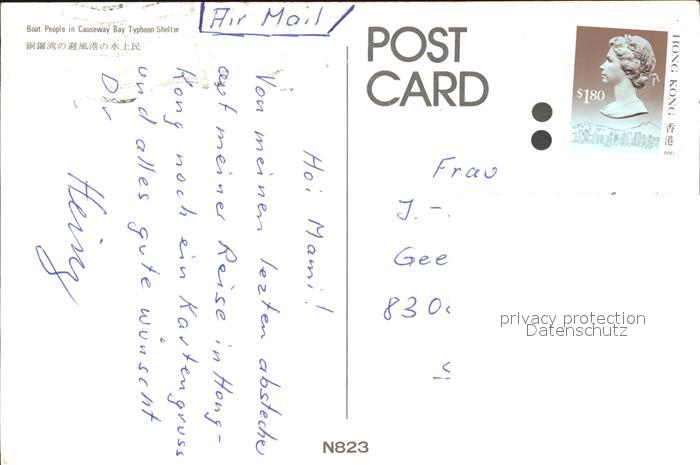 Boat People in Causeway Bay Typhoon Shelter
銅鑼湾の避風港の水上民
Air Mail
POST
CARD
HONG KONG 香港
$1.80
1990
Hoi Mami!
Von meinen lezten abstecher
auf meiner Reise in Hong-
Kong noch ein Kartengruss
und alles gute wünscht
Dir
Heinz
Frau
J.-.
Gee
830
privacy protection
Datenschutz
N823